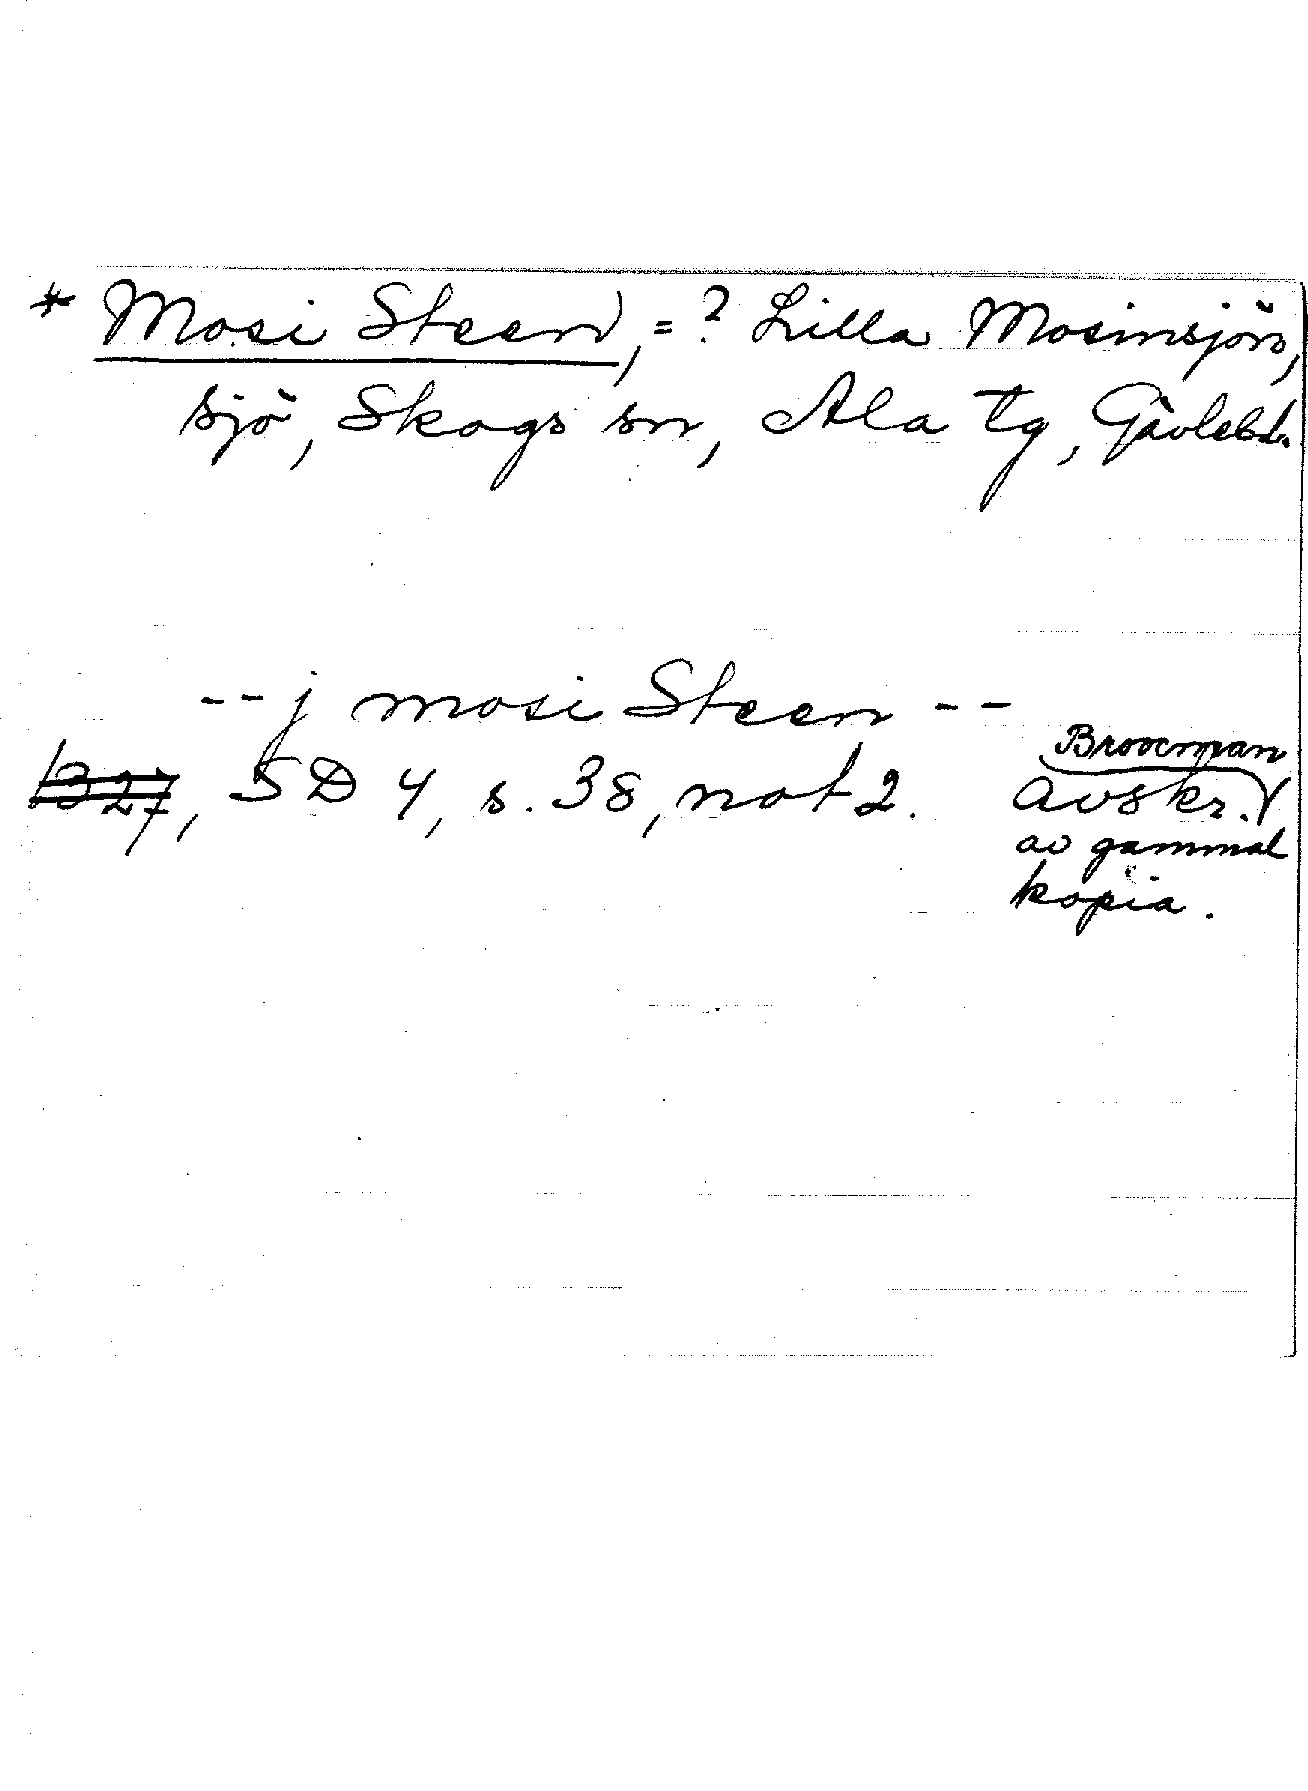 * Mosi Steen, = ? Lilla Mosinsjön,
sjö, Skogs sn, Ala tg, Gävlebl.
-- j mosi Steen --
1327, SD 4, s. 38, not 2.
Broocman
avskr.
av gammal
kopia.